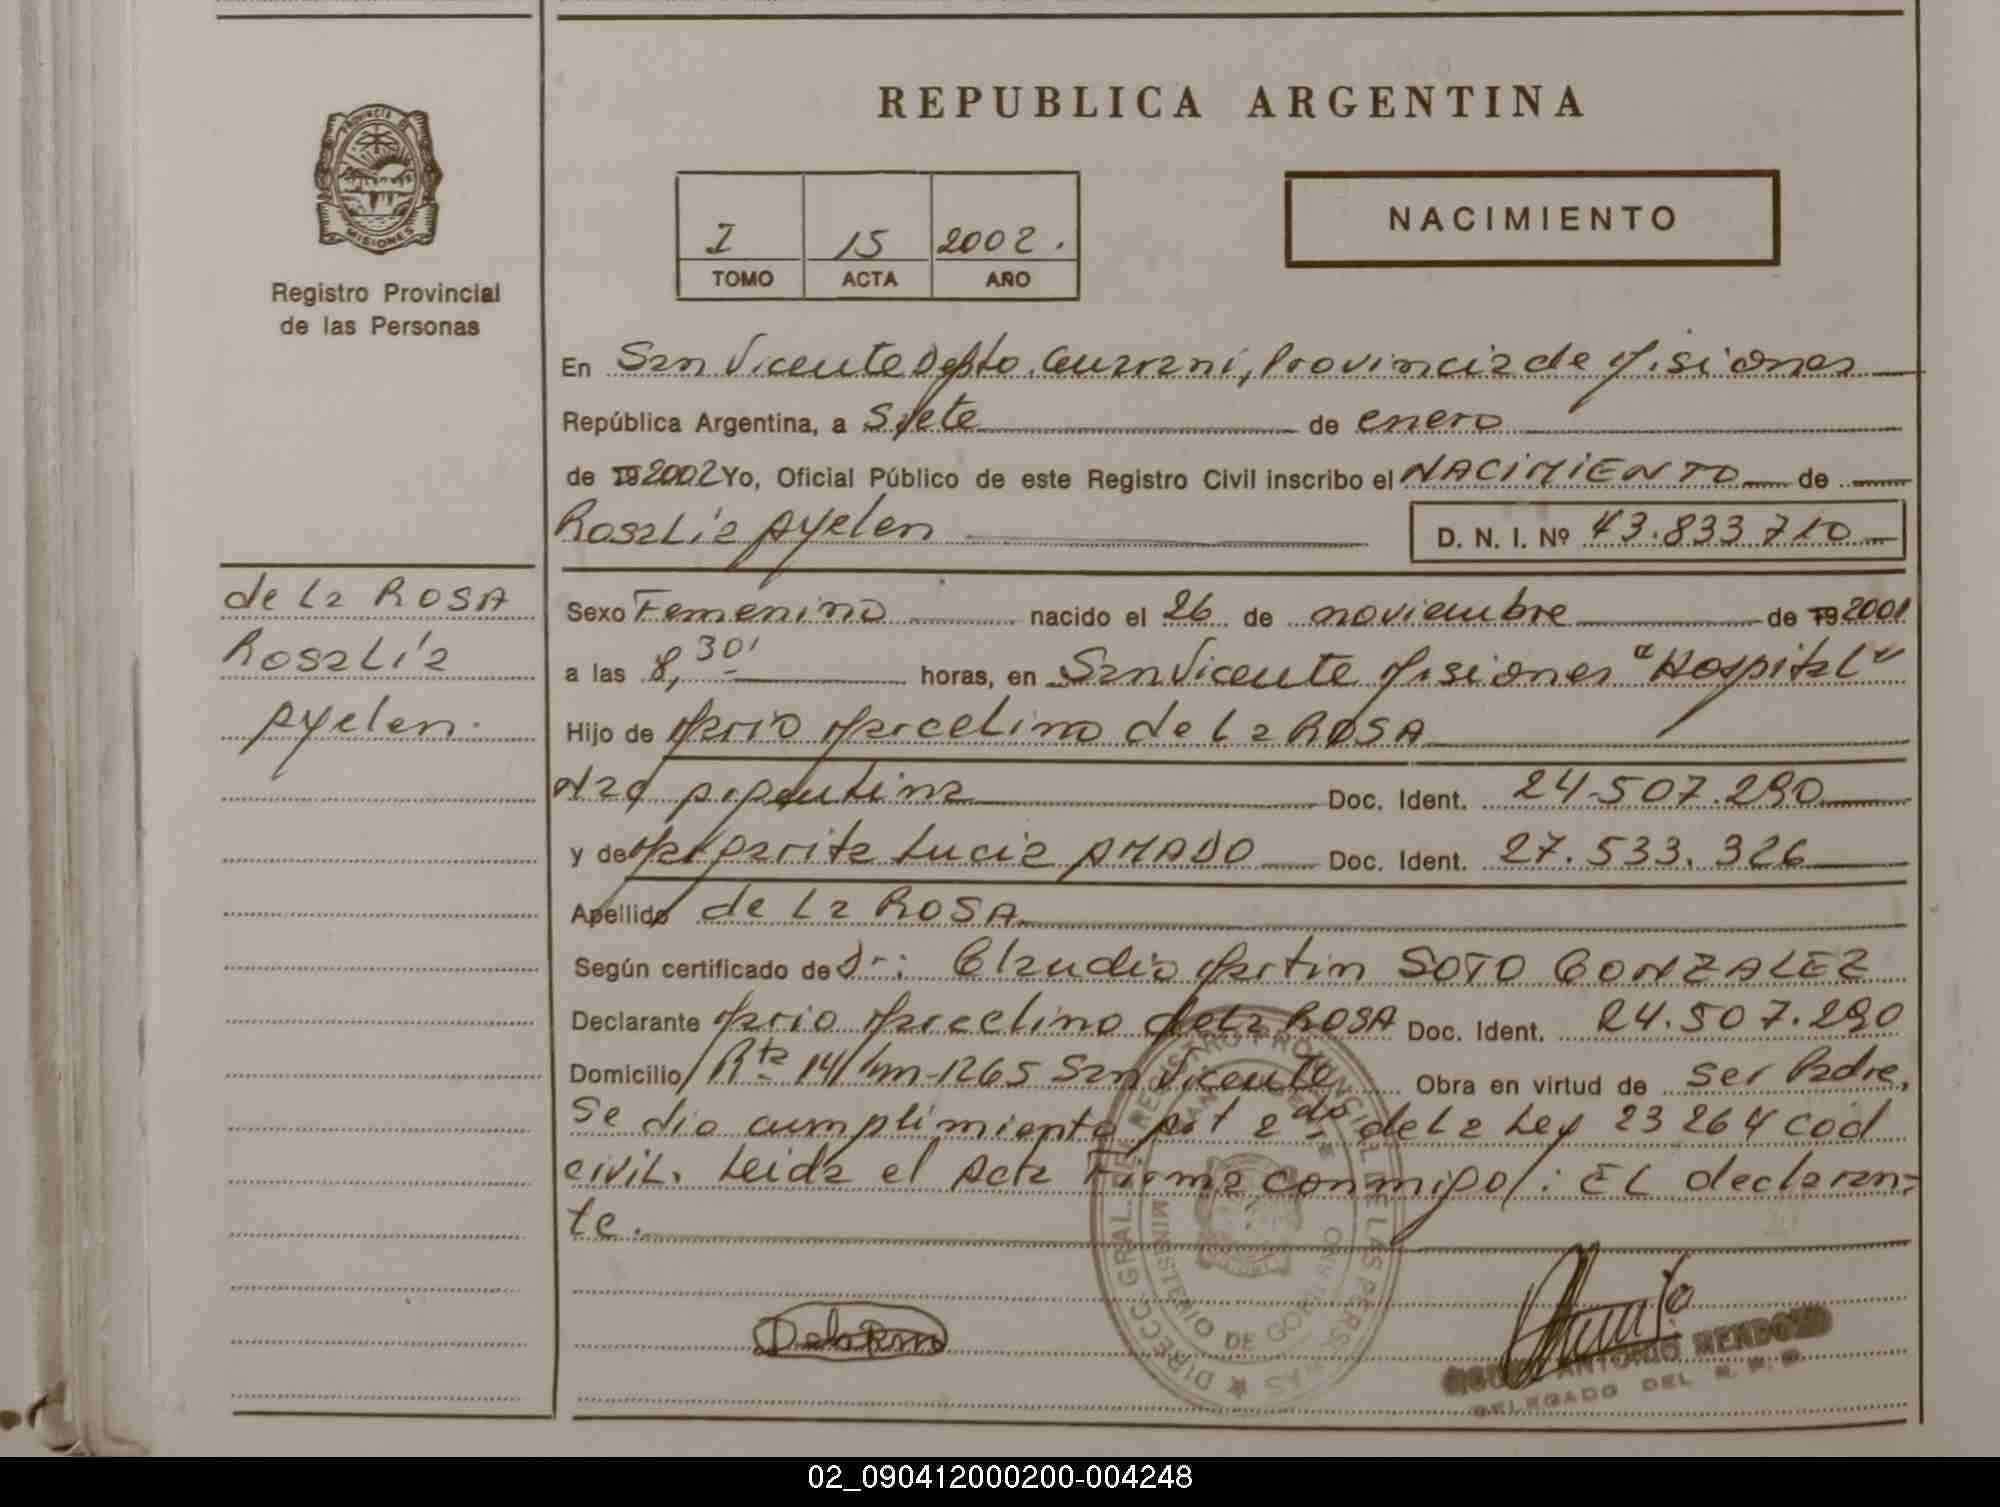 REPUBLICA ARGENTINA
PROVINCIA DE
MISIONES
Registro Provincial
de las Personas
I 15 2002.
TOMO ACTA AÑO
NACIMIENTO
En San Vicente Depto. Guaraní, Provincia de Misiones
República Argentina, a Siete de enero
de 19 2002 Yo, Oficial Público de este Registro Civil inscribo el NACIMIENTO de
Rosalía Ayelen D. N. I. Nº 43.833.710
de la ROSA
Rosalía
Ayelen.
Sexo Femenino nacido el 26 de noviembre de 19 2001
a las 8,30' horas, en San Vicente Misiones "Hospital"
Hijo de Mario Marcelino de la ROSA
Nac Argentina Doc. Ident. 24.507.290
y de Margarita Lucia AMADO Doc. Ident. 27.533.326
Apellido de la ROSA
Según certificado de Dr: Claudio Martin SOTO GONZALEZ
Declarante Mario Marcelino de la ROSA Doc. Ident. 24.507.290
Domicilio Rta 14/km-1265 San Vicente Obra en virtud de ser Padre,
Se dio cumplimiento art 2do de la Ley 23264 Cod
civil. Leida el Acta Firma conmigo/: EL declaran-
te.
DIRECC. GRAL. DEL REGISTRO PROVINCIAL DE LAS PERSONAS
MINISTERIO DE GOBIERNO
ANTONIO MENDOZA
DELEGADO DEL R. P. P.
02_090412000200-004248